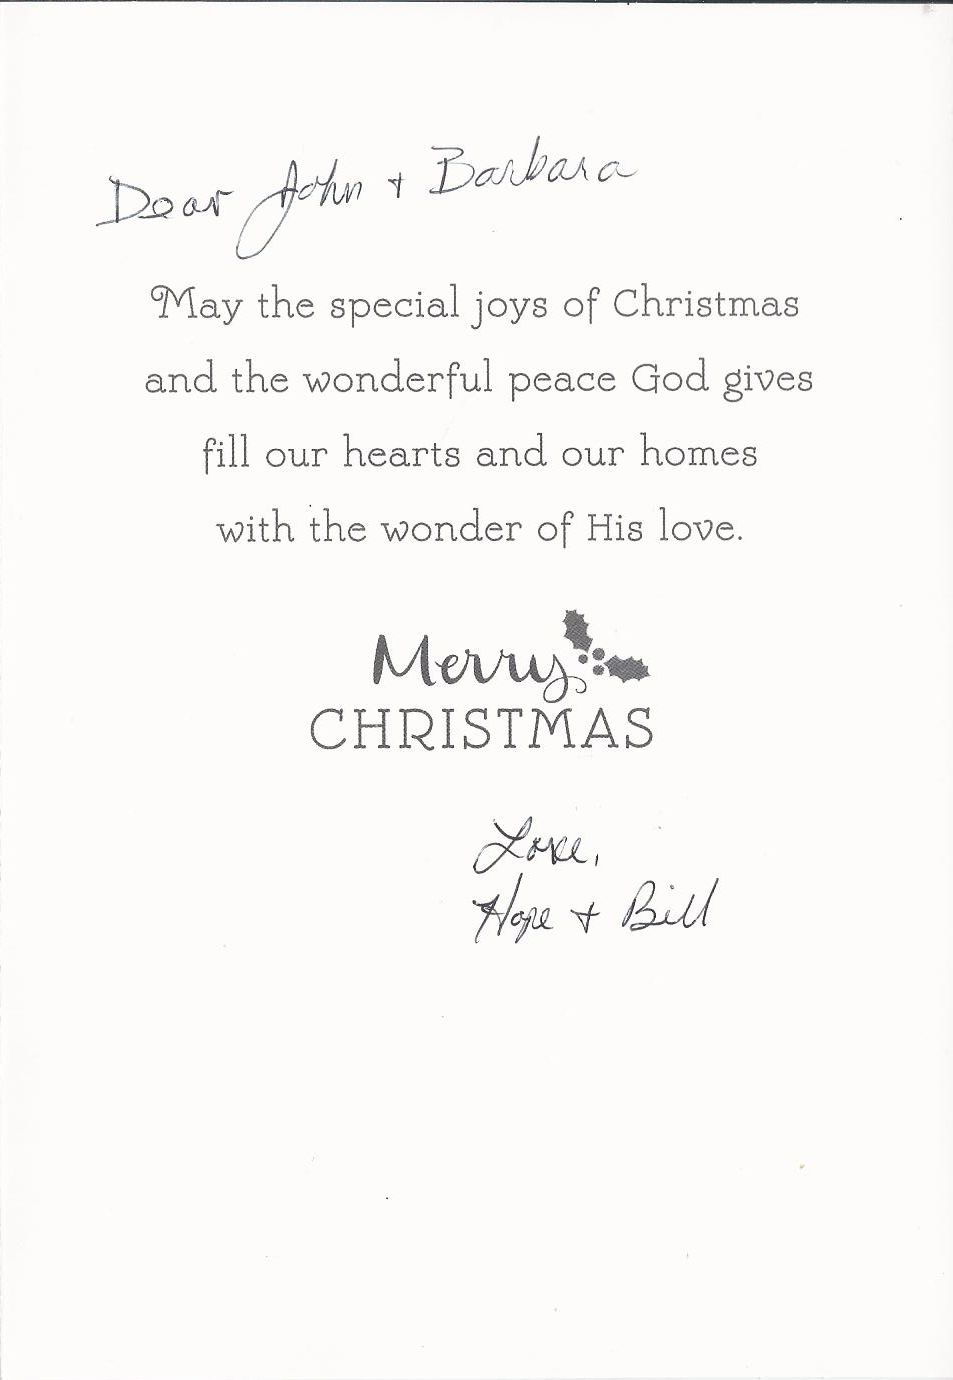 Dear John + Barbara
May the special joys of Christmas
and the wonderful peace God gives
fill our hearts and our homes
with the wonder of His love.
Merry
CHRISTMAS
Love,
Hope + Bill